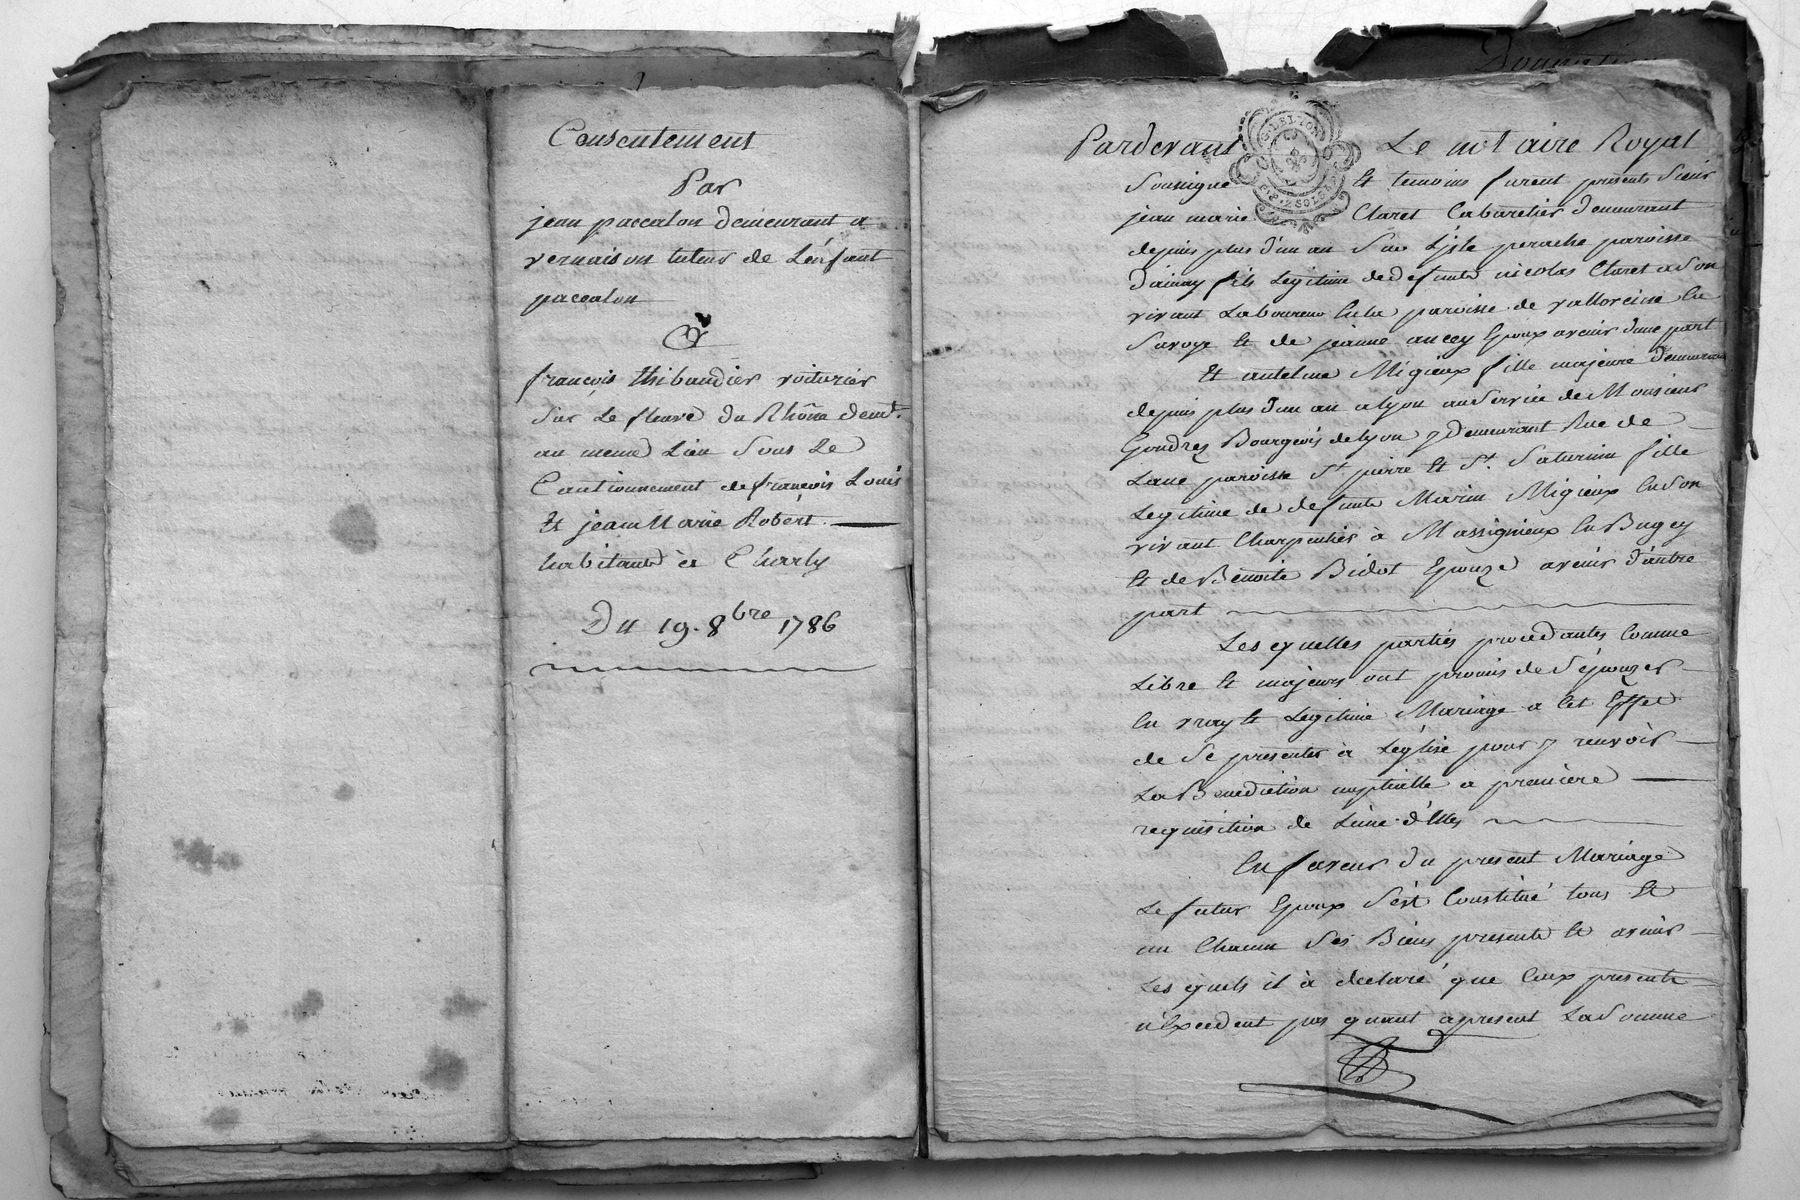 Consentement
Par
jean paccalon demeurant a
vernaison tuteur de L'enfant
paccalon
A
françois thibaudier voiturier
sur Le fleuve du Rhône demt.
au meme Lieu sous Le
Cautionnement de françois Louis
Et jean Marie Robert
habitants à Charly
Du 19. 8bre 1786
Pardevant Le notaire Royal
soussigné Et temoins furent présents sieur
jean marie Claret Cabaretier demeurant
depuis plus d'un an sur L'isle perache paroisse
d'ainay fils Legitime de defunts nicolas Claret a son
vivant Laboureur En la paroisse de valloreine En
savoye Et de jeanne ancey Epoux avenir d'une part
Et antelme Migieux fille majeure demeurant
depuis plus d'un an a lyon au service de Monsieur
Bourgeois de lyon y demeurant Rue de
Lane paroisse St pierre Et St. Saturnin fille
Legitime de defunts Marin Migieux En son
vivant Charpentier à Massignieux En Bugey
Et de Benoite Bidot Epouze avenir d'autre
part
Les quelles parties procedantes Comme
Libre Et majeurs ont promis de s'épouzer
En vray Et Legitime Mariage a Cet Effet
de se presenter à Léglise pour y recevoir
La Benediction nuptialle a première
requisition de L'une d'Elles
En faveur du present Mariage
Le futur Epoux s'est Constitué tous Et
un Chacun ses Biens presents Et avenir
Les quels il à declaré que Ceux presents
n'Excedent pas quant apresent La somme